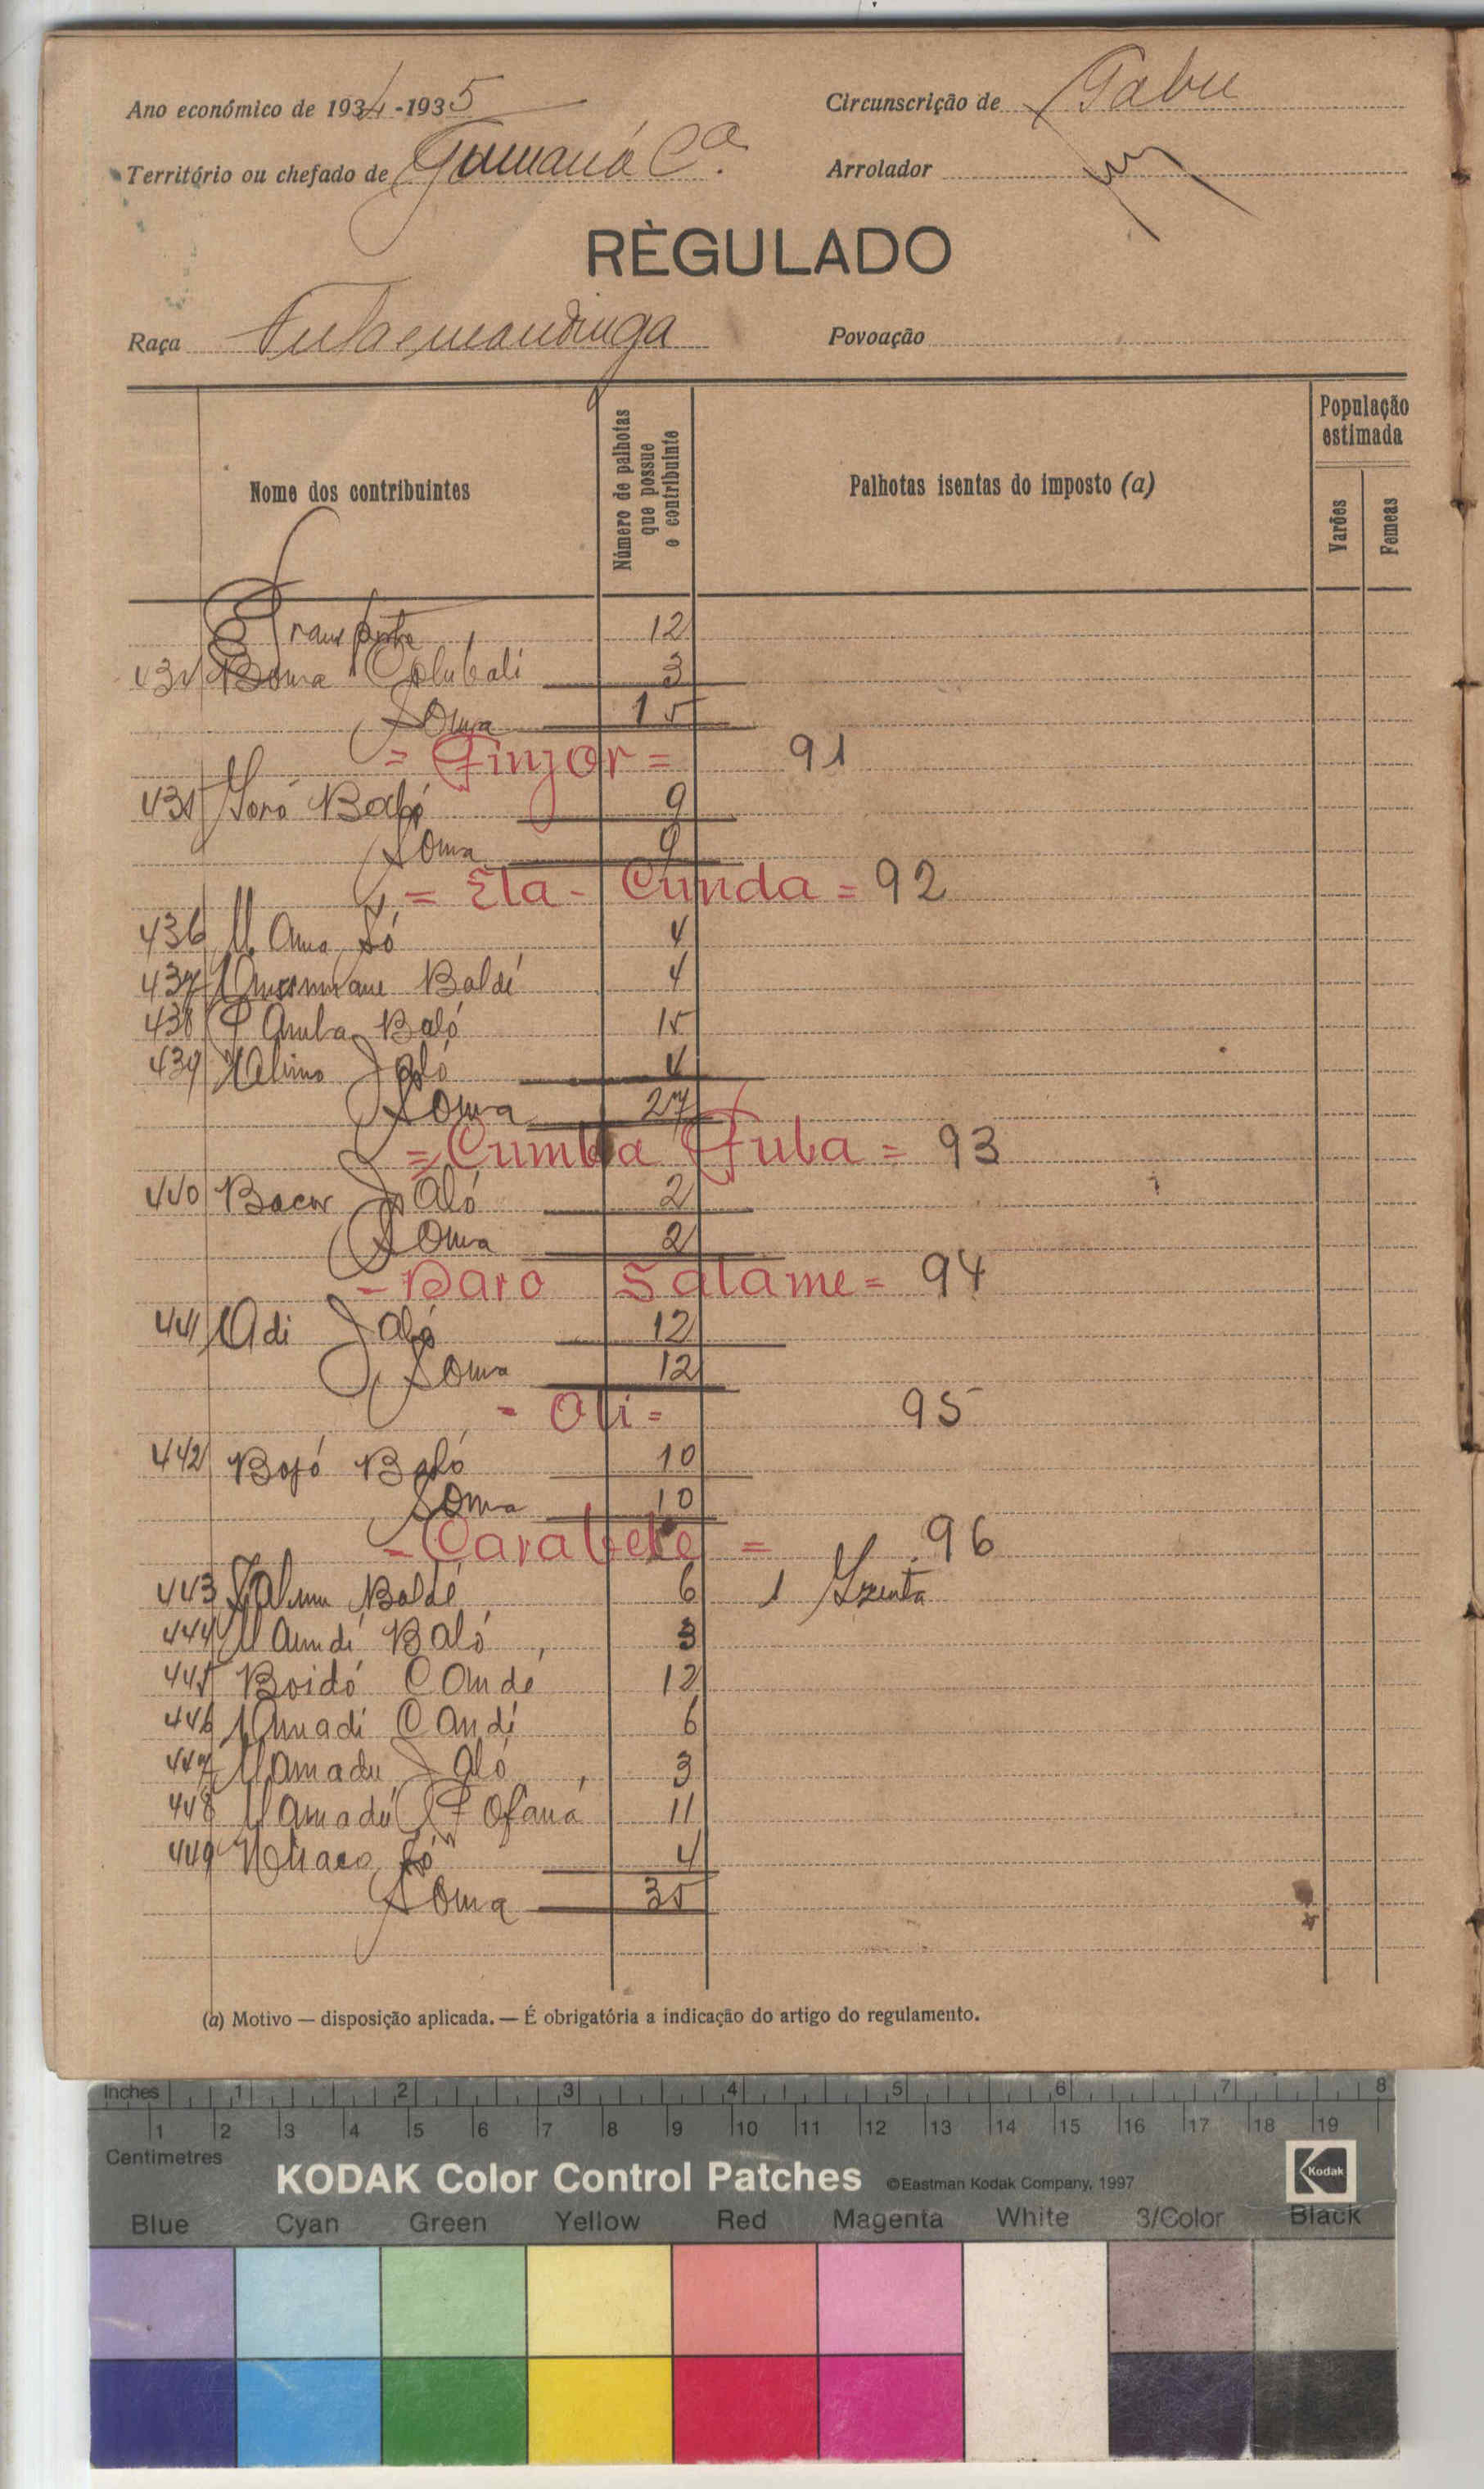 Ano económico de 1934-1935
Circunscrição de Gabu
Território ou chefado de Gumaná Cª.
Arrolador
RÈGULADO
Raça Fula e mandinga
Povoação
Nome dos contribuintes
Número de palhotas que possue o contribuinte
Palhotas isentas do imposto (a)
População estimada
Varões
Femeas
Transporte 12
Boma Colubali 3
Soma 15
= Finjor = 91
Joró Baló 9
Soma 9
= Ela - Cunda = 92
436 Mama Só 4
437 Baldé 4
438 Baló 15
439 Jaló 4
Soma 27
= Cumba Fula = 93
440 Bacar Jaló 2
Soma 2
- Baro Salame = 94
441 Adi Jaló 12
Soma 12
- Oli = 95
442 Bojó Baló 10
Soma 10
- Carabeke = 96
443 Baldé 6 1 Izenta
444 Mamdi Baló 3
445 Boidó Candé 12
446 Amadi Candé 6
447 Mamadu Jaló 3
448 Mamadú Fofaná 11
449 Só 4
Soma 35
(a) Motivo — disposição aplicada. — É obrigatória a indicação do artigo do regulamento.
Inches 1 2 3 4 5 6 7 8
1 2 3 4 5 6 7 8 9 10 11 12 13 14 15 16 17 18 19
Centimetres
KODAK Color Control Patches ©Eastman Kodak Company, 1997
Kodak
Blue Cyan Green Yellow Red Magenta White 3/Color Black